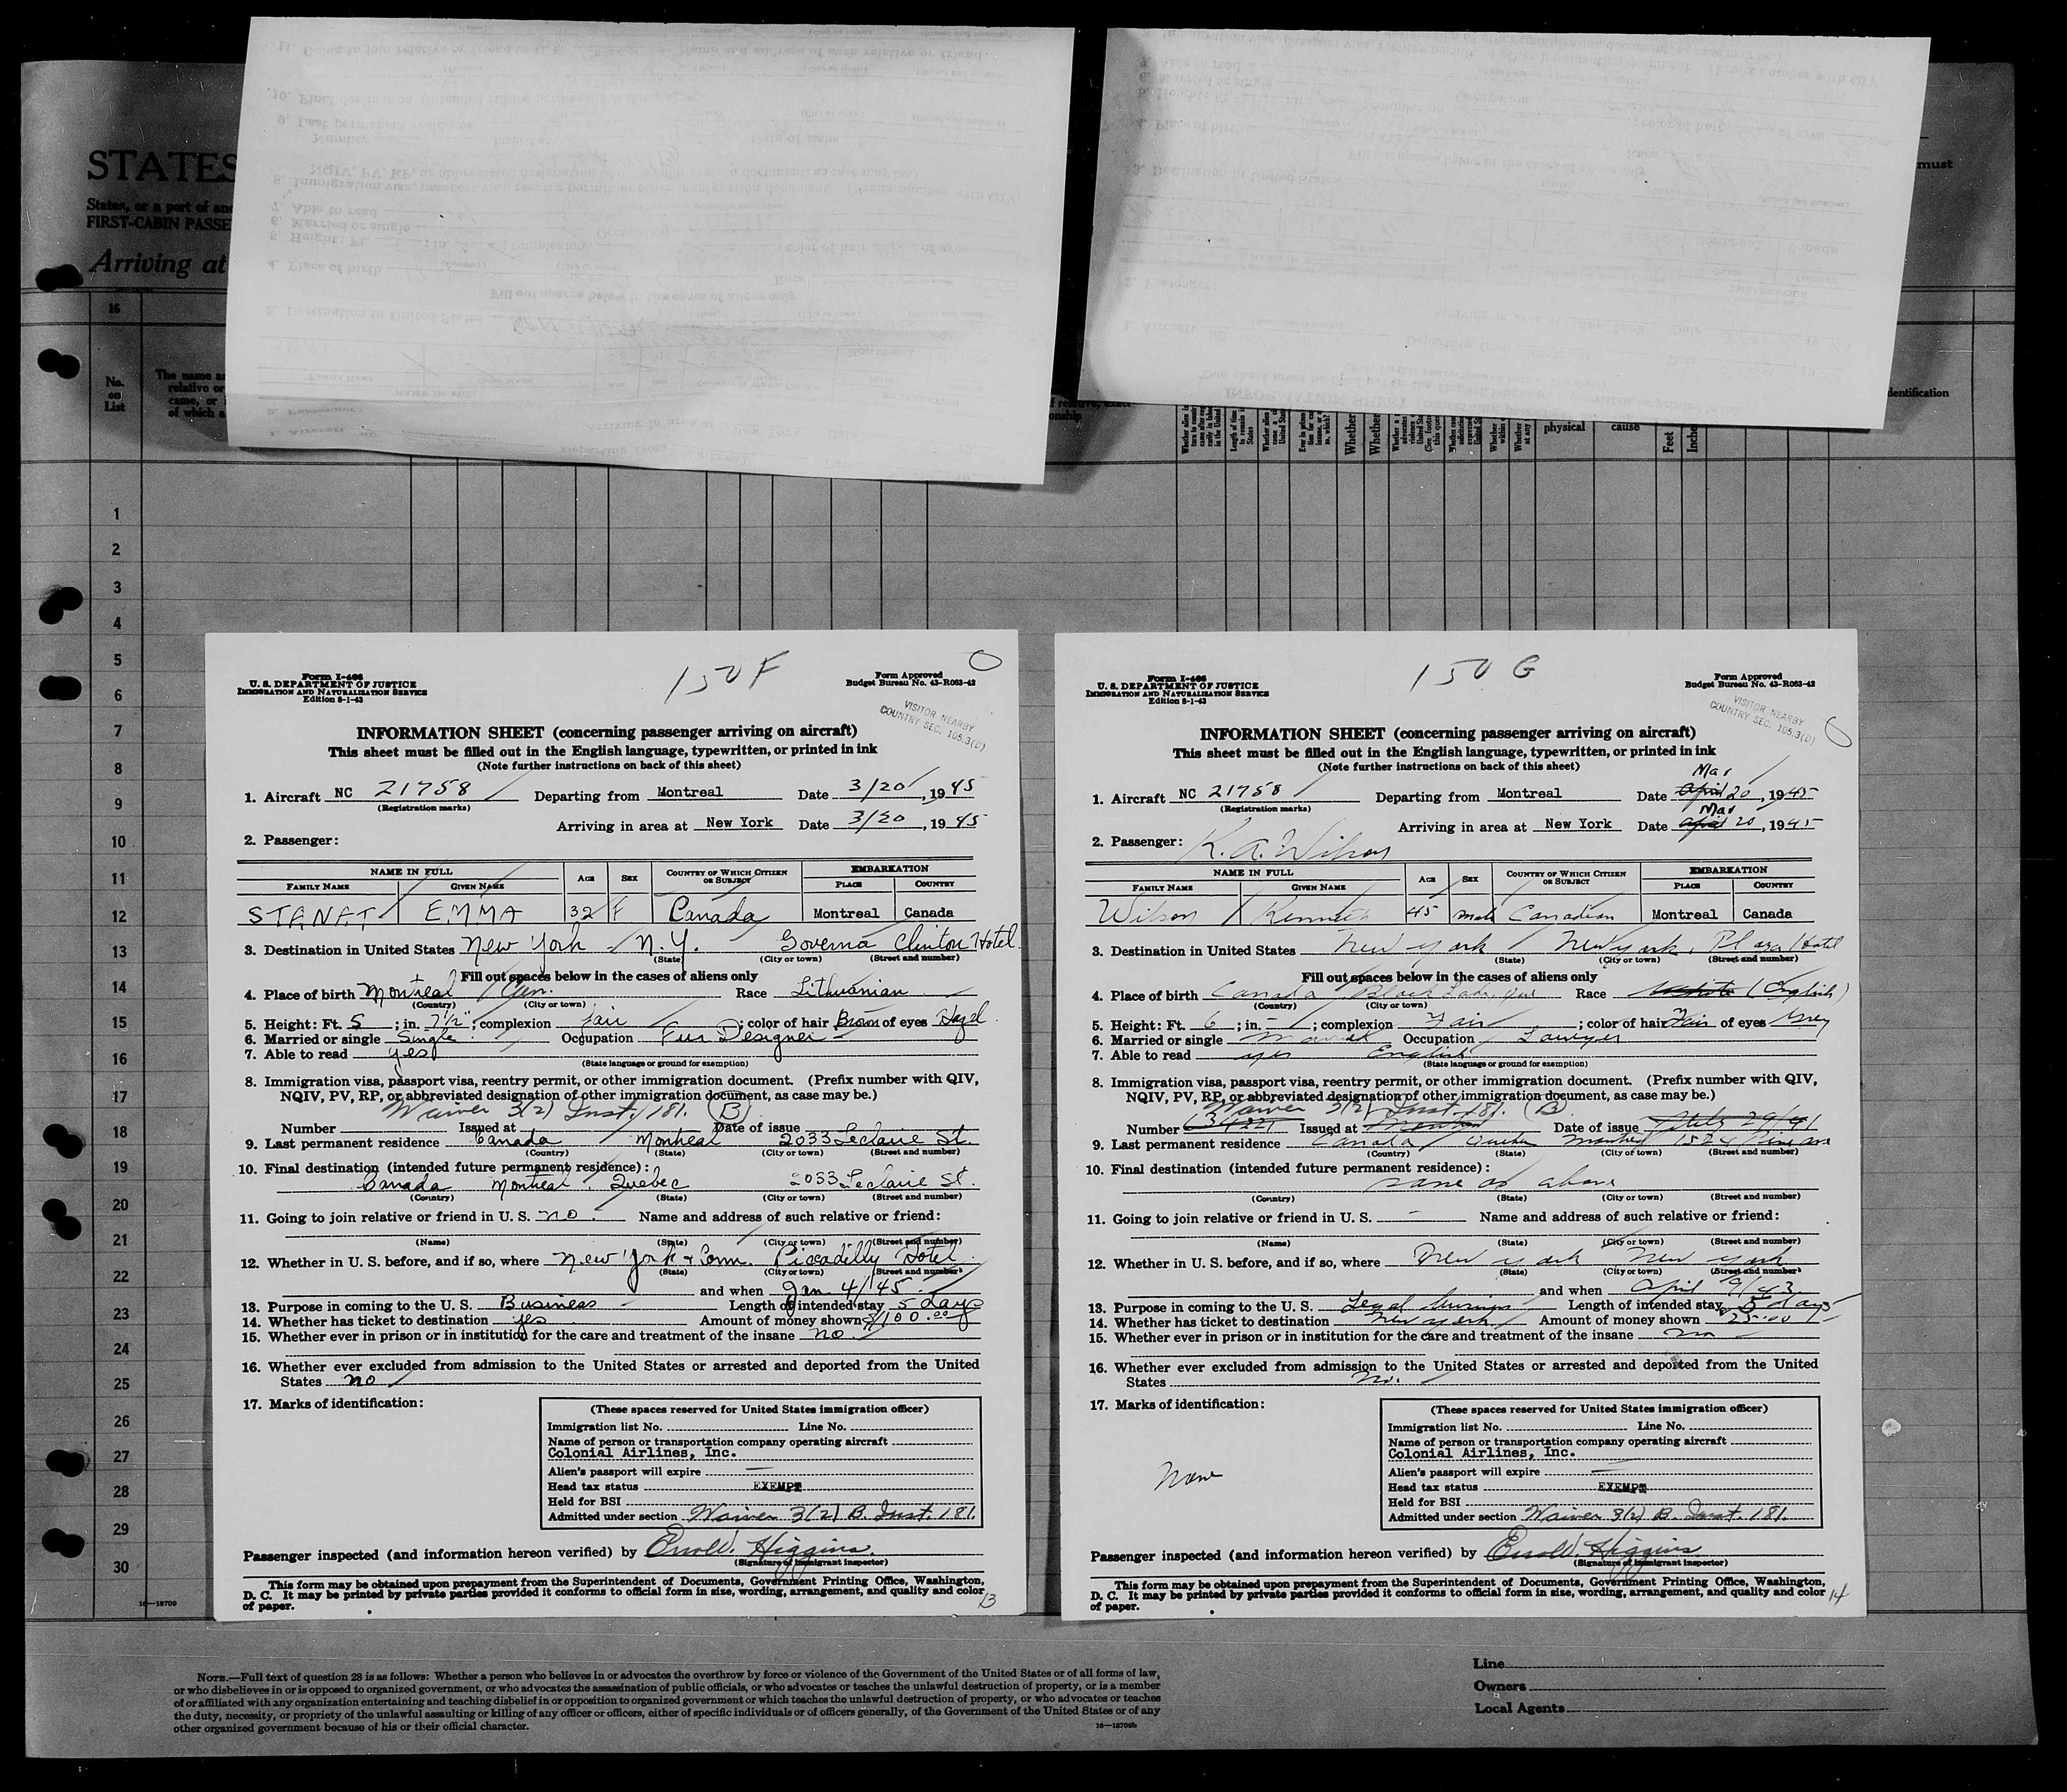 STATES
States, or a part of
FIRST-CABIN PASSE
Arriving at
must
16
No.
on
List
The name
relative or
came, or
of which a
physical
cause
Feet
Inche
dentification
1
2
3
4
5
6
7
8
9
10
11
12
13
14
15
16
17
18
19
20
21
22
23
24
25
26
27
28
29
30
16—18709
150 F
Form I-466
U. S. DEPARTMENT OF JUSTICE
IMMIGRATION AND NATURALIZATION SERVICE
Edition 8-1-43
Form Approved
Budget Bureau No. 43-R063-42
VISITOR NEARBY
COUNTRY SEC. 105.3(0)
INFORMATION SHEET (concerning passenger arriving on aircraft)
This sheet must be filled out in the English language, typewritten, or printed in ink
(Note further instructions on back of this sheet)
1. Aircraft NC 21758 Departing from Montreal Date 3/20, 1945
(Registration marks)
Arriving in area at New York Date 3/20, 1945
2. Passenger:
NAME IN FULL AGE SEX COUNTRY OF WHICH CITIZEN OR SUBJECT EMBARKATION
FAMILY NAME GIVEN NAME PLACE COUNTRY
EMMA 32 F Canada Montreal Canada
3. Destination in United States New York N.Y. Governor Clinton Hotel
(State) (City or town) (Street and number)
Fill out spaces below in the cases of aliens only
4. Place of birth Montreal Race Lithuanian
(Country) (City or town)
5. Height: Ft. 5; in. 7 1/2"; complexion fair; color of hair Brown of eyes Hazel
6. Married or single Single Occupation Fur Designer
7. Able to read yes
(State language or ground for exemption)
8. Immigration visa, passport visa, reentry permit, or other immigration document. (Prefix number with QIV,
NQIV, PV, RP, or abbreviated designation of other immigration document, as case may be.)
Waiver 3(2) Inst. 181. (B)
Number Issued at Date of issue
9. Last permanent residence Canada Montreal 2033 Leclaire St.
(Country) (State) (City or town) (Street and number)
10. Final destination (intended future permanent residence):
Canada Montreal. Quebec 2033 Leclaire St.
(Country) (State) (City or town) (Street and number)
11. Going to join relative or friend in U. S. no. Name and address of such relative or friend:
(Name) (State) (City or town) (Street and number)
12. Whether in U. S. before, and if so, where New York & Conn. Piccadilly Hotel
(State) (City or town) (Street and number)
and when Jan 4/45.
13. Purpose in coming to the U. S. Business Length of intended stay 5 days
14. Whether has ticket to destination yes Amount of money shown $100.00
15. Whether ever in prison or in institution for the care and treatment of the insane no.
16. Whether ever excluded from admission to the United States or arrested and deported from the United
States no
17. Marks of identification:
(These spaces reserved for United States immigration officer)
Immigration list No. Line No.
Name of person or transportation company operating aircraft
Colonial Airlines, Inc.
Alien's passport will expire —
Head tax status EXEMPT
Held for BSI
Admitted under section Waiver 3(2) B. Inst. 181.
Passenger inspected (and information hereon verified) by Errol W. Higgins.
(Signature of immigrant inspector)
This form may be obtained upon prepayment from the Superintendent of Documents, Government Printing Office, Washington,
D. C. It may be printed by private parties provided it conforms to official form in size, wording, arrangement, and quality and color
of paper.
13
150 G
Form I-466
U. S. DEPARTMENT OF JUSTICE
IMMIGRATION AND NATURALIZATION SERVICE
Edition 8-1-43
Form Approved
Budget Bureau No. 43-R063-42
VISITOR NEARBY
COUNTRY SEC. 105.3(0)
INFORMATION SHEET (concerning passenger arriving on aircraft)
This sheet must be filled out in the English language, typewritten, or printed in ink
(Note further instructions on back of this sheet)
Mar
1. Aircraft NC 21758 Departing from Montreal Date April 20, 1945
(Registration marks)
Mar
Arriving in area at New York Date April 20, 1945
2. Passenger: K. A. Wilson
NAME IN FULL AGE SEX COUNTRY OF WHICH CITIZEN OR SUBJECT EMBARKATION
FAMILY NAME GIVEN NAME PLACE COUNTRY
Wilson Kenneth 45 male Canadian Montreal Canada
3. Destination in United States New York New York, Plaza Hotel
(State) (City or town) (Street and number)
Fill out spaces below in the cases of aliens only
4. Place of birth Canada Black Lake, Que Race (English)
(Country) (City or town)
5. Height: Ft. 6; in. -; complexion Fair; color of hair Fair of eyes Grey
6. Married or single Married Occupation Lawyer
7. Able to read yes English
(State language or ground for exemption)
8. Immigration visa, passport visa, reentry permit, or other immigration document. (Prefix number with QIV,
NQIV, PV, RP, or abbreviated designation of other immigration document, as case may be.)
Waiver 3(2) Inst. 181. (B)
Number Issued at Date of issue
9. Last permanent residence Canada Quebec Montreal 1524 Pine ave
(Country) (State) (City or town) (Street and number)
10. Final destination (intended future permanent residence):
same as above
(Country) (State) (City or town) (Street and number)
11. Going to join relative or friend in U. S. - Name and address of such relative or friend:
(Name) (State) (City or town) (Street and number)
12. Whether in U. S. before, and if so, where New York New York
(State) (City or town) (Street and number)
and when April 9/43
13. Purpose in coming to the U. S. Legal business Length of intended stay 5 days
14. Whether has ticket to destination New York Amount of money shown 25.00
15. Whether ever in prison or in institution for the care and treatment of the insane no
16. Whether ever excluded from admission to the United States or arrested and deported from the United
States no.
17. Marks of identification:
None
(These spaces reserved for United States immigration officer)
Immigration list No. Line No.
Name of person or transportation company operating aircraft
Colonial Airlines, Inc.
Alien's passport will expire —
Head tax status EXEMPT
Held for BSI
Admitted under section Waiver 3(2) B. Inst. 181.
Passenger inspected (and information hereon verified) by Errol W. Higgins
(Signature of immigrant inspector)
This form may be obtained upon prepayment from the Superintendent of Documents, Government Printing Office, Washington,
D. C. It may be printed by private parties provided it conforms to official form in size, wording, arrangement, and quality and color
of paper.
14
NOTE.—Full text of question 28 is as follows: Whether a person who believes in or advocates the overthrow by force or violence of the Government of the United States or of all forms of law,
or who disbelieves in or is opposed to organized government, or who advocates the assassination of public officials, or who advocates or teaches the unlawful destruction of property, or is a member
of or affiliated with any organization entertaining and teaching disbelief in or opposition to organized government or which teaches the unlawful destruction of property, or who advocates or teaches
the duty, necessity, or propriety of the unlawful assaulting or killing of any officer or officers, either of specific individuals or of officers generally, of the Government of the United States or of any
other organized government because of his or their official character.
16—18709b
Line
Owners
Local Agents